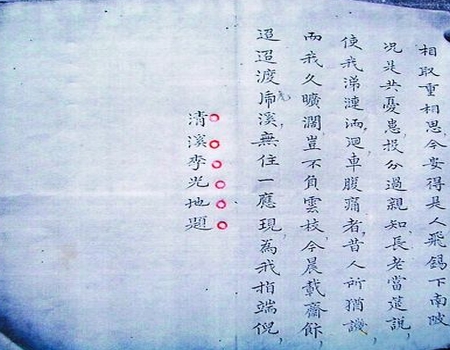 相取重相思今安得是人飛錫下南陂
況是共憂患投分過親知長老當莚說
使我涕漣洏迴車腹痛者昔人所猶譏
而我久曠濶豈不負雲枝今晨載齋餘
迢迢渡虎溪無住一應現為我指端倪
清溪李光地題